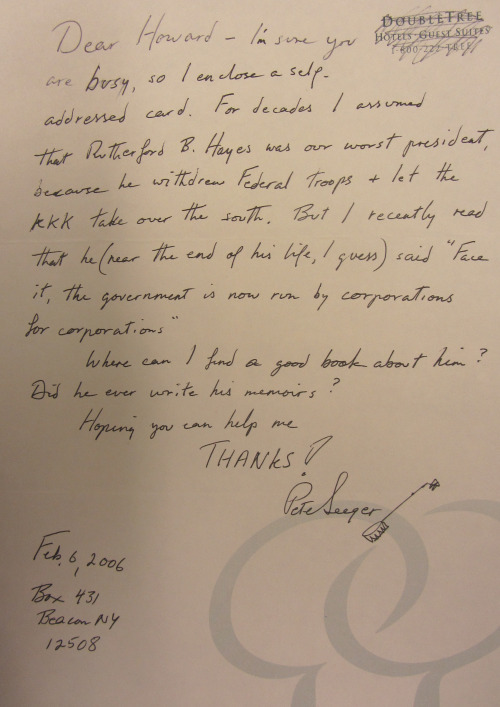 DOUBLETREE
HOTELS · GUEST SUITES
1-800-222-TREE
Dear Howard - I'm sure you
are busy, so I enclose a self-
addressed card. For decades I assumed
that Rutherford B. Hayes was our worst president,
because he withdrew Federal troops + let the
KKK take over the south. But I recently read
that he (near the end of his life, I guess) said "Face
it, the government is now run by corporations
for corporations"
Where can I find a good book about him?
Did he ever write his memoirs?
Hoping you can help me
THANKS!
Pete Seeger
Feb. 6, 2006
Box 431
Beacon NY
12508